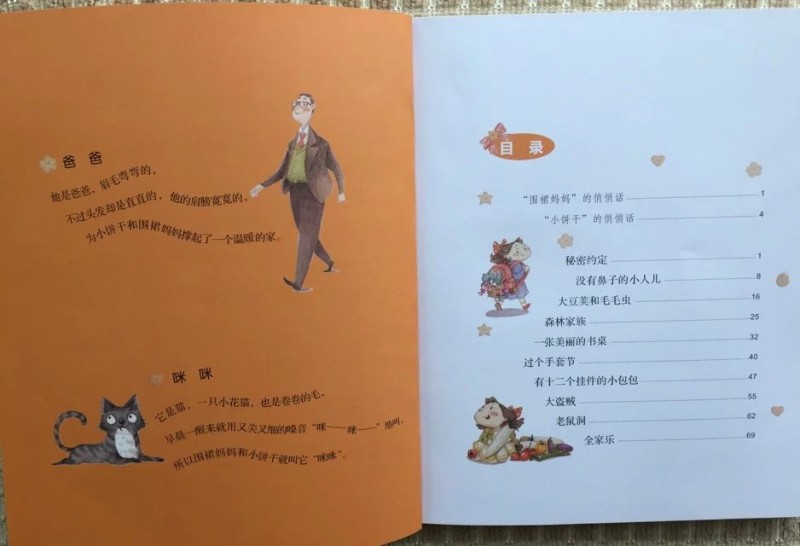 爸爸
他是爸爸，眉毛弯弯的，
不过头发却是直直的，他的肩膀宽宽的，
为小饼干和围裙妈妈撑起了一个温暖的家。
咪咪
它是猫，一只小花猫，也是卷卷的毛，
早晨一醒来就用又尖又细的嗓音“咪——咪——”地叫，
所以围裙妈妈和小饼干就叫它“咪咪”。
目录
“围裙妈妈”的悄悄话 1
“小饼干”的悄悄话 4
秘密约定 1
没有鼻子的小人儿 8
大豆荚和毛毛虫 16
森林家族 25
一张美丽的书桌 32
过个手套节 40
有十二个挂件的小包包 47
大盗贼 55
老鼠洞 62
全家乐 69